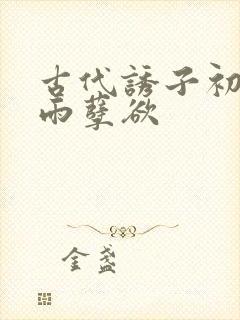 古代誘子初
雨孽欲
金盏